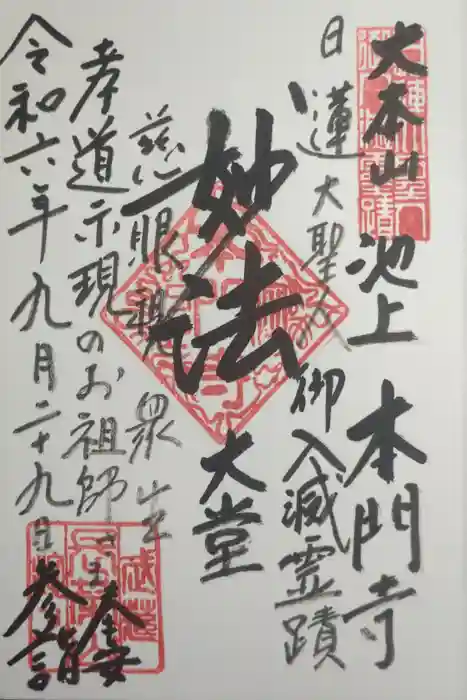 大本山 池上 本門寺
日蓮大聖人 御入滅霊蹟
妙法 大堂
慈眼視衆生
孝道示現のお祖師さま 奉安
令和六年九月二十九日 参詣